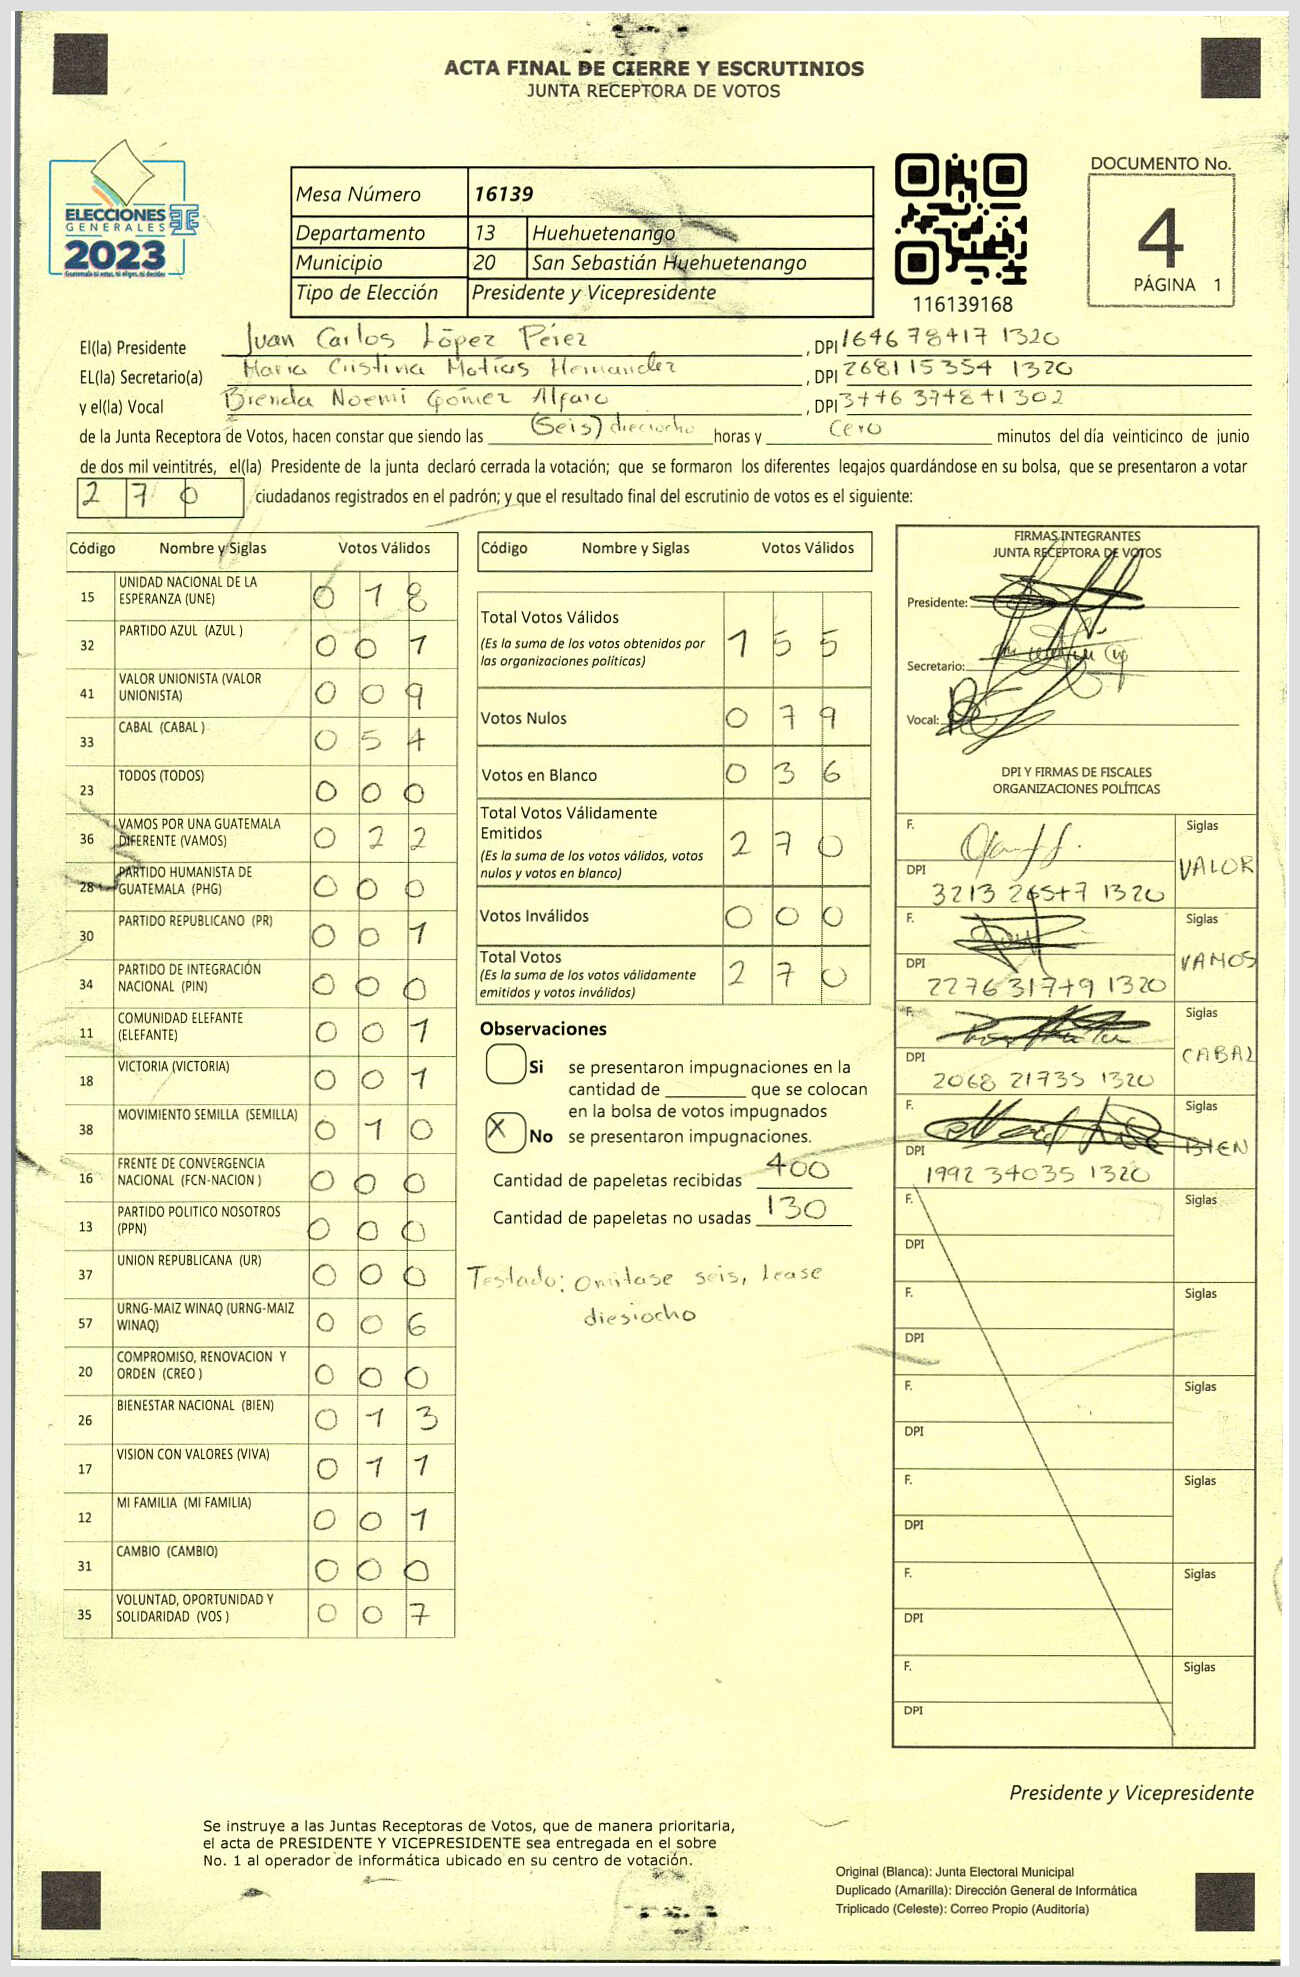 ACTA FINAL DE CIERRE Y ESCRUTINIOS
JUNTA RECEPTORA DE VOTOS
ELECCIONES
GENERALES
2023
Mesa Número 16139
Departamento 13 Huehuetenango
Municipio 20 San Sebastián Huehuetenango
Tipo de Elección Presidente y Vicepresidente
116139168
DOCUMENTO No.
4
PÁGINA 1
El(la) Presidente Juan Carlos López Pérez, DPI 164678417 1320
EL(la) Secretario(a) Maria Cristina Matías Hernandez, DPI 268115354 1320
y el(la) Vocal Brenda Noemi Gómez Alfaro, DPI 3446374841302
de la Junta Receptora de Votos, hacen constar que siendo las (Seis) dieciocho horas y cero minutos del día veinticinco de junio
de dos mil veintitrés, el(la) Presidente de la junta declaró cerrada la votación; que se formaron los diferentes legajos guardándose en su bolsa, que se presentaron a votar
270 ciudadanos registrados en el padrón; y que el resultado final del escrutinio de votos es el siguiente:
Código Nombre y Siglas Votos Válidos
15 UNIDAD NACIONAL DE LA ESPERANZA (UNE) 0 1 8
32 PARTIDO AZUL (AZUL ) 0 0 1
41 VALOR UNIONISTA (VALOR UNIONISTA) 0 0 9
33 CABAL (CABAL ) 0 5 4
23 TODOS (TODOS) 0 0 0
36 VAMOS POR UNA GUATEMALA DIFERENTE (VAMOS) 0 2 2
28 PARTIDO HUMANISTA DE GUATEMALA (PHG) 0 0 0
30 PARTIDO REPUBLICANO (PR) 0 0 1
34 PARTIDO DE INTEGRACIÓN NACIONAL (PIN) 0 0 0
11 COMUNIDAD ELEFANTE (ELEFANTE) 0 0 1
18 VICTORIA (VICTORIA) 0 0 1
38 MOVIMIENTO SEMILLA (SEMILLA) 0 1 0
16 FRENTE DE CONVERGENCIA NACIONAL (FCN-NACION ) 0 0 0
13 PARTIDO POLITICO NOSOTROS (PPN) 0 0 0
37 UNION REPUBLICANA (UR) 0 0 0
57 URNG-MAIZ WINAQ (URNG-MAIZ WINAQ) 0 0 6
20 COMPROMISO, RENOVACION Y ORDEN (CREO ) 0 0 0
26 BIENESTAR NACIONAL (BIEN) 0 1 3
17 VISION CON VALORES (VIVA) 0 1 1
12 MI FAMILIA (MI FAMILIA) 0 0 1
31 CAMBIO (CAMBIO) 0 0 0
35 VOLUNTAD, OPORTUNIDAD Y SOLIDARIDAD (VOS ) 0 0 7
Código Nombre y Siglas Votos Válidos
Total Votos Válidos 1 5 5
(Es la suma de los votos obtenidos por
las organizaciones políticas)
Votos Nulos 0 7 9
Votos en Blanco 0 3 6
Total Votos Válidamente
Emitidos 2 7 0
(Es la suma de los votos válidos, votos
nulos y votos en blanco)
Votos Inválidos 0 0 0
Total Votos 2 7 0
(Es la suma de los votos válidamente
emitidos y votos inválidos)
Observaciones
Si se presentaron impugnaciones en la
cantidad de ________ que se colocan
en la bolsa de votos impugnados
X No se presentaron impugnaciones.
Cantidad de papeletas recibidas 400
Cantidad de papeletas no usadas 130
Testado: omitase seis, lease
diesiocho
FIRMAS INTEGRANTES
JUNTA RECEPTORA DE VOTOS
Presidente:
Secretario:
Vocal:
DPI Y FIRMAS DE FISCALES
ORGANIZACIONES POLÍTICAS
F. Siglas
VALOR
DPI
3213 26547 1320
F. Siglas
VAMOS
DPI
2276 31749 1320
F. Siglas
CABAL
DPI
2068 21735 1320
F. Siglas
BIEN
DPI
1992 34035 1320
F. Siglas
DPI
F. Siglas
DPI
F. Siglas
DPI
F. Siglas
DPI
F. Siglas
DPI
F. Siglas
DPI
Presidente y Vicepresidente
Se instruye a las Juntas Receptoras de Votos, que de manera prioritaria,
el acta de PRESIDENTE Y VICEPRESIDENTE sea entregada en el sobre
No. 1 al operador de informática ubicado en su centro de votación.
Original (Blanca): Junta Electoral Municipal
Duplicado (Amarilla): Dirección General de Informática
Triplicado (Celeste): Correo Propio (Auditoría)